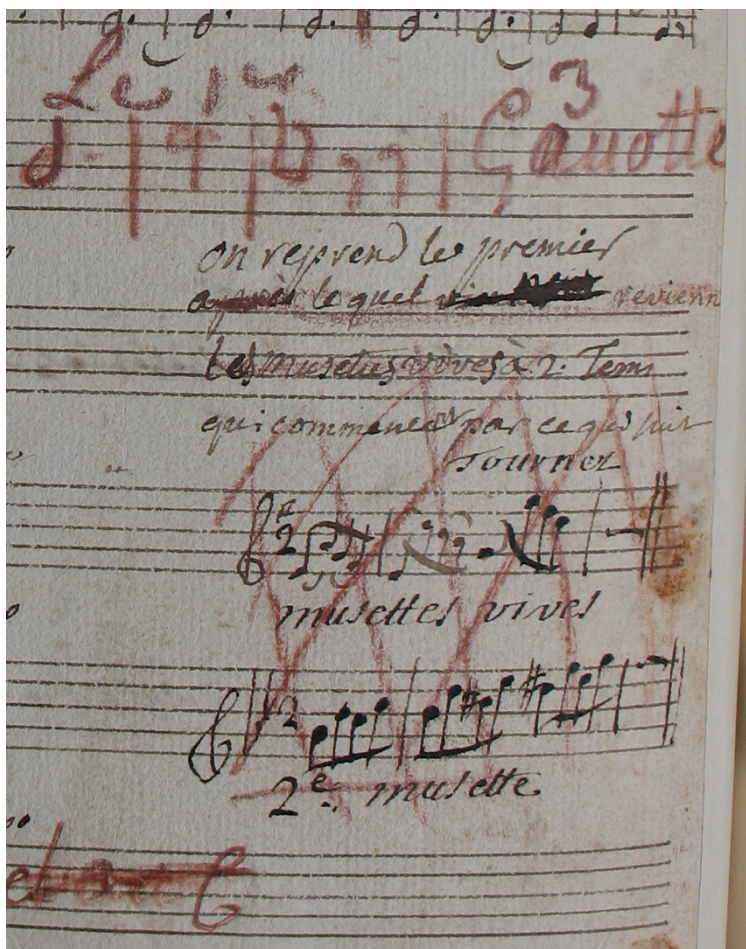 Le 1er 3
Gauotte
on reprend le premier
après lequel revienn
les musettes vives à 2. Tems
qui commencent par ce qui suit
Tournez
2
musettes vives
2
2e. musette